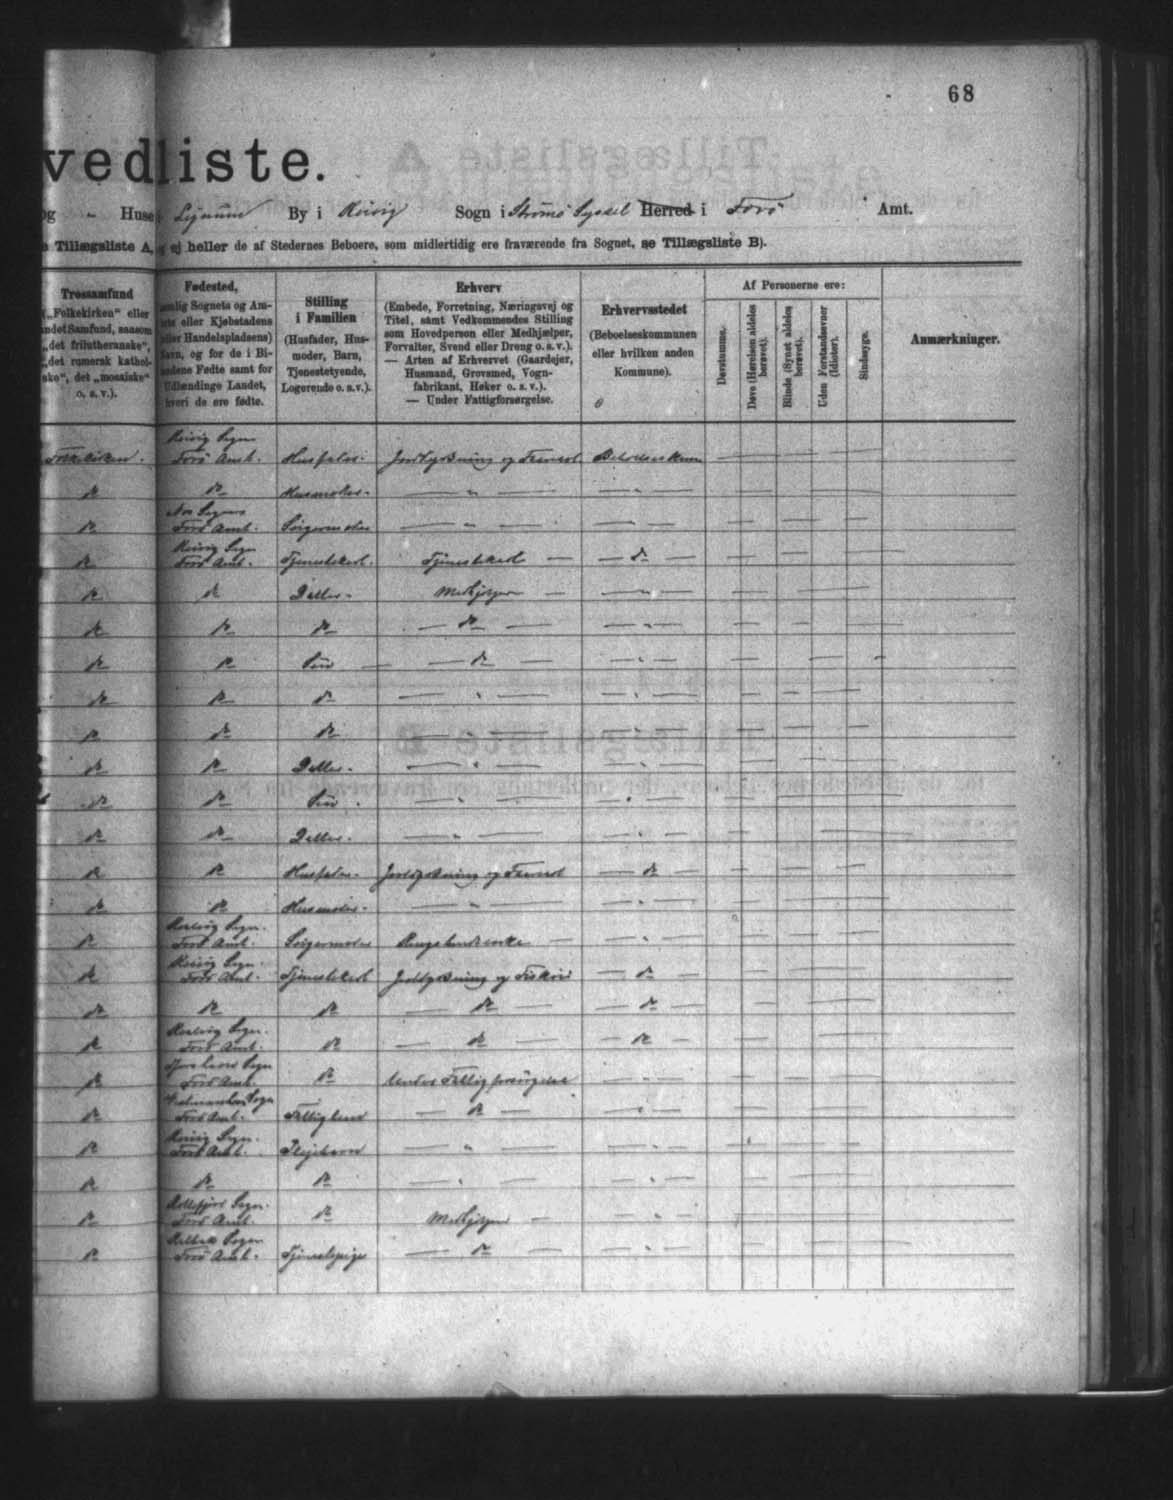 68
vedliste.
og " Huse i Lejnum By i Kvivig Sogn i Strømø Syssel Herred i Færø Amt.
e Tillægsliste A, og ej heller de af Stedernes Beboere, som midlertidig ere fraværende fra Sognet, se Tillægsliste B).
Trossamfund
(„Folkekirken“ eller
andet Samfund, saasom
„det frilutheranske“,
„det romersk kathol-
ske“, det „mosaiske“
o. s. v.).
Fødested,
nemlig Sognets og Am-
tets eller Kjøbstadens
(eller Handelspladsens)
Navn, og for de i Bi-
landene Fødte samt for
Udlændinge Landet,
hvori de ere fødte.
Stilling
i Familien
(Husfader, Hus-
moder, Barn,
Tjenestetyende,
Logerende o. s. v.).
Erhverv
(Embede, Forretning, Næringsvej og
Titel, samt Vedkommendes Stilling
som Hovedperson eller Medhjælper,
Forvalter, Svend eller Dreng o. s. v.).
— Arten af Erhvervet (Gaardejer,
Husmand, Grovsmed, Vogn-
fabrikant, Høker o. s. v.).
— Under Fattigforsørgelse.
Erhvervsstedet
(Beboelseskommunen
eller hvilken anden
Kommune).
Af Personerne ere:
Døvstumme.
Døve (Hørelsen aldeles
berøvet).
Blinde (Synet aldeles
berøvet).
Uden Forstandsevner
(Idioter).
Sindssyge.
Anmærkninger.
Kvivig Sogn
Folkekirken. Færø Amt. Husfader. Jordbyrkning og Faareavl Beboelseskom
do do Husmoder. — " — — " —
Sogn
do Færø Amt. Svigermoder — " — — " —
Kvivig Sogn
do Færø Amt. Tjenestekarl. Tjenestekarl — — do —
do do Datter. Medhjelper — — " —
do do do — do — — " —
do do Søn — — do — — " —
do do do — " — — " —
do do do — " — — " —
do do Datter. — " — — " —
do do Søn. — " — — " —
do do Datter. — " — — " —
do do Husfader. Jordbyrkning og Faareavl — do —
do do Husmoder. — " — — " —
Sogn.
do Færø Amt. Svigermoder — — " —
Kvivig Sogn.
do Færø Amt. Tjenestekarl Jordbyrkning og Fiskeri — do —
do do do — do — — do —
Sogn.
do Færø Amt. do — do — — do —
Sogn
do Færø Amt. do Under Fattigforsørgelse — " —
Sogn
do Færø Amt. Fattiglem — do — — " —
Kvivig Sogn.
do Færø Amt. Plejebarn — " — — " —
do do do — " — — " —
Kollefjord Sogn.
do Færø Amt. do Medhjelper — — " —
Sogn
do Færø Amt. Tjenestepige — do — — " —